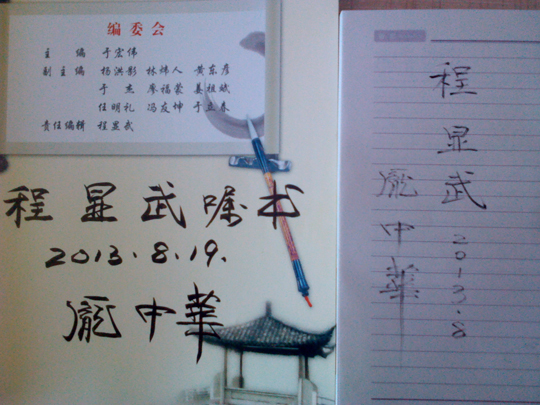 编委会
主 编 于宏伟
副主编 杨洪影 林炜人 黄东彦
于杰 廖福蒙 姜祖斌
任明礼 冯友坤 于立春
责任编辑 程显武
程显武嘱书
2013.8.19.
龐中華
程显武
2013.8
龐中華